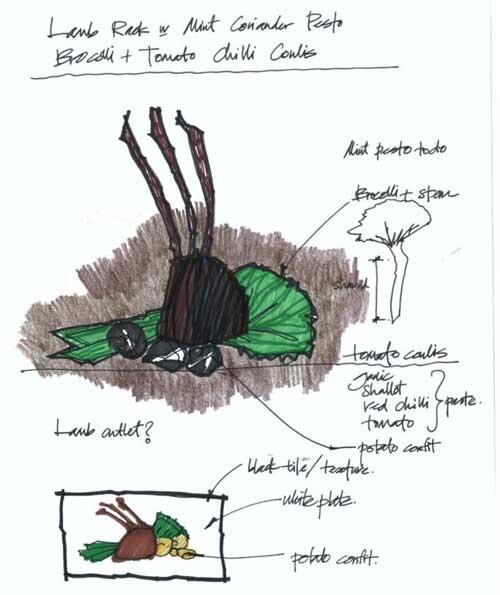 Lamb Rack w Mint Coriander Pesto
Brocolli + Tomato Chilli Coulis
Mint pesto todo
Brocolli + stem
shaved
tomato coulis
garlic
shallot
red chilli
tomato
paste.
potato confit
Lamb cutlet?
black tile/texture.
white plate.
potato confit.